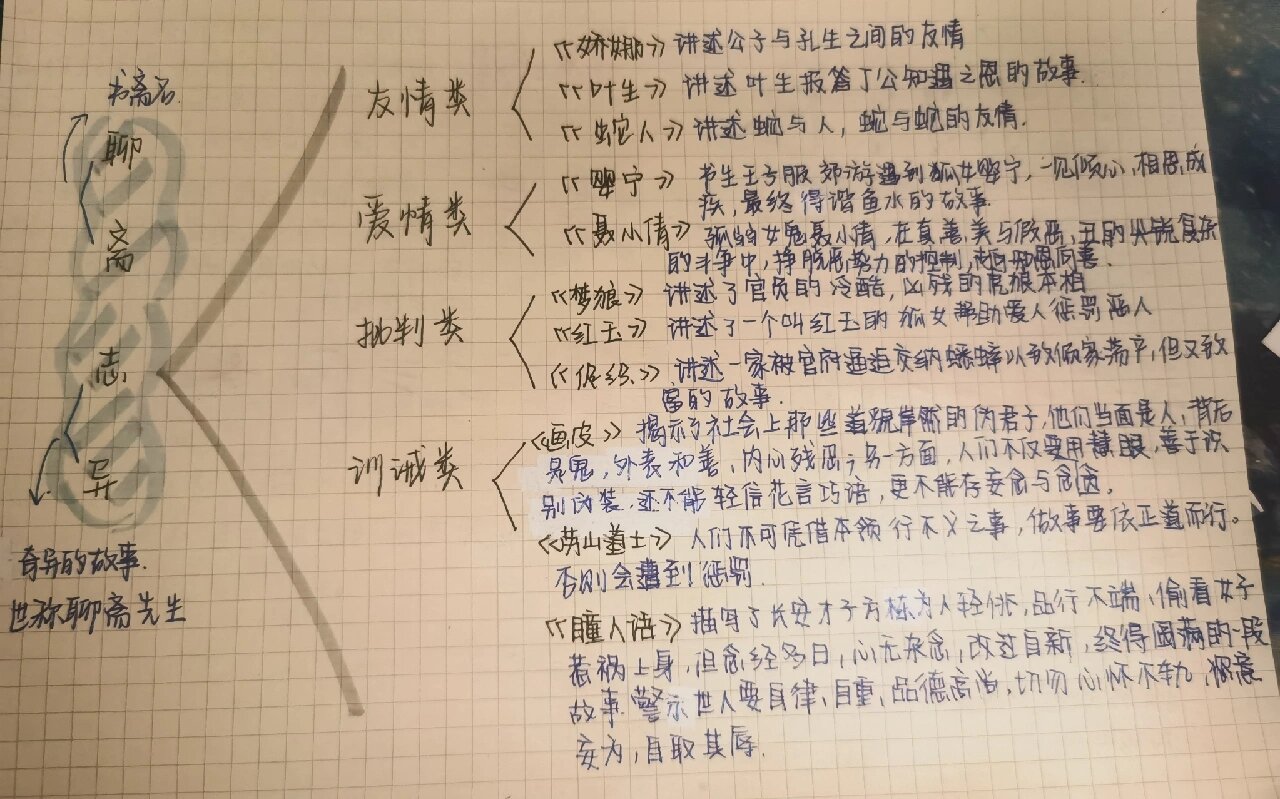 书斋名
聊
斋
志
异
奇异的故事.
世称聊斋先生
友情类
《娇娜》讲述公子与孔生之间的友情
《叶生》讲述叶生报答丁公知遇之恩的故事.
《蛇人》讲述蛇与人,蛇与蛇的友情.
爱情类
《婴宁》书生王子服郊游遇到狐女婴宁,一见倾心,相思成
疾,最终得谐鱼水的故事
《聂小倩》孤独女鬼聂小倩,在真善美与假恶,丑的尖锐复杂
的斗争中,挣脱恶势力的控制,弃恶向善.
批判类
《梦狼》讲述了官员的冷酷,凶残的虎狼本相
《红玉》讲述了一个叫红玉的狐女帮助爱人惩罚恶人
《促织》讲述一家被官府逼迫交纳蟋蟀以致倾家荡产,但又致
富的故事.
训诫类
《画皮》揭示了社会上那些道貌岸然的伪君子,他们当面是人,背后
是鬼,外表和善,内心残恶;另一方面,人们不仅要用慧眼,善于识
别伪装,还不能轻信花言巧语,更不能存妄念与贪图.
《崂山道士》人们不可凭借本领行不义之事,做事要依正道而行。
否则会遭到惩罚.
《瞳人语》描写了长安才子方栋为人轻佻,品行不端,偷看女子
惹祸上身,但念经多日,心无杂念,改过自新,终得圆满的一段
故事.警示世人要自律,自重,品德高尚,切勿心怀不轨,恣意
妄为,自取其辱.